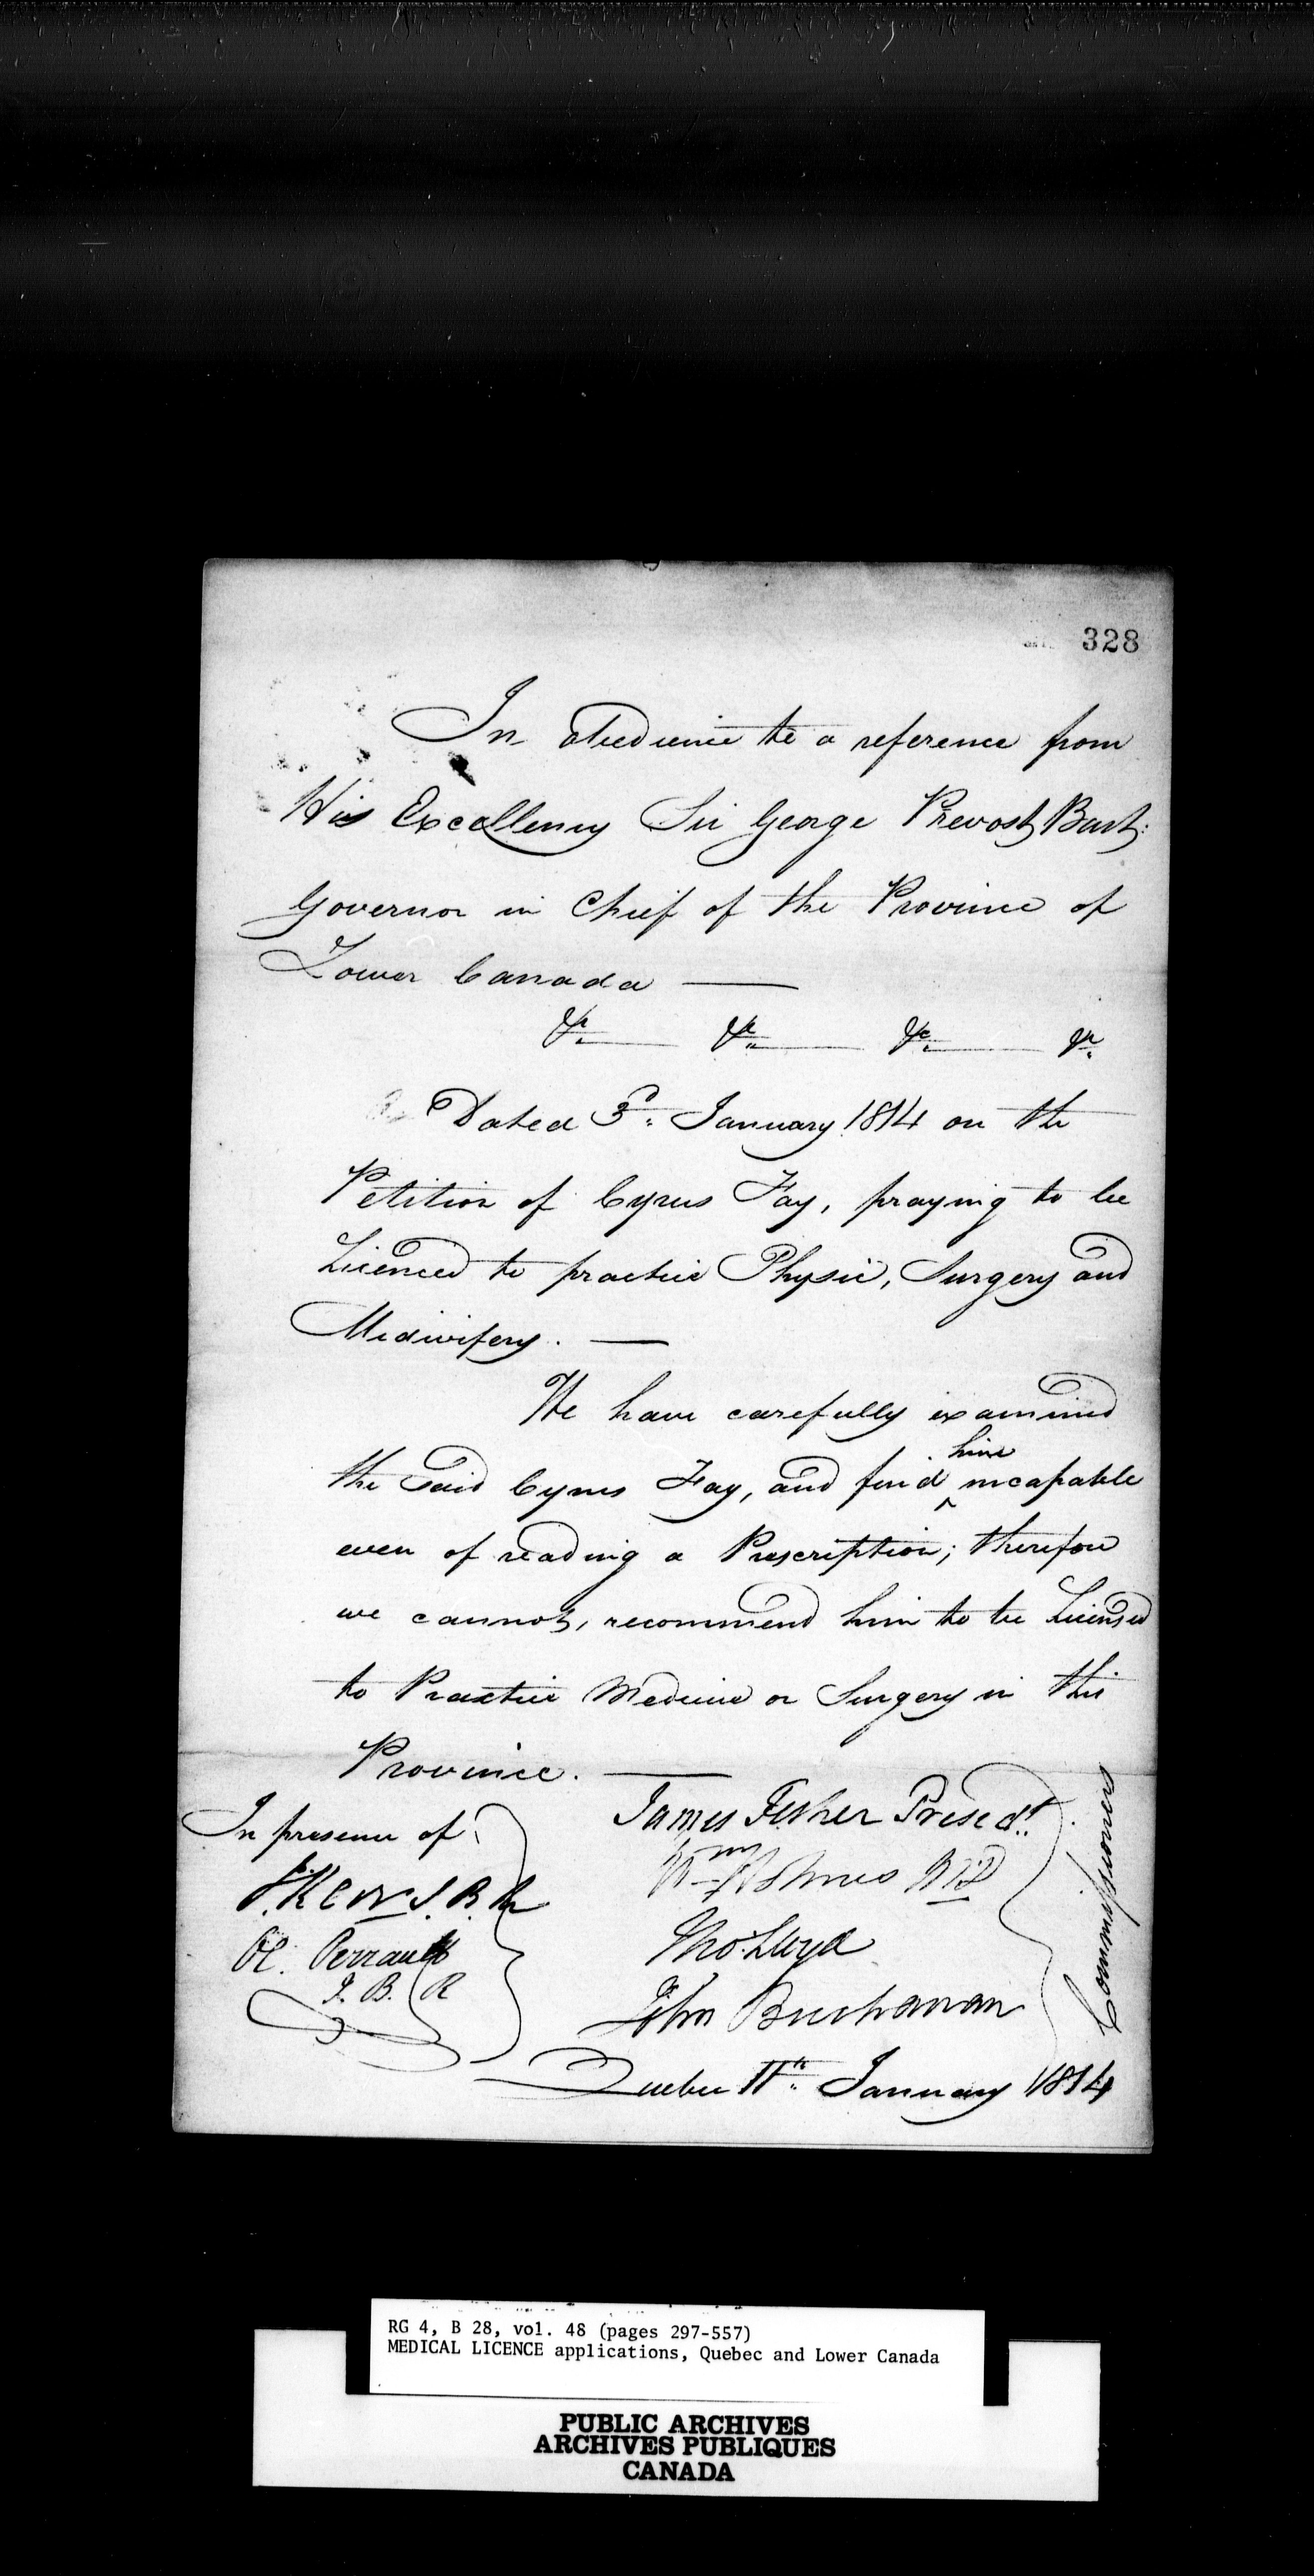 328
In obedience to a reference from
His Excellency Sir George Prevost Bart:
Governor in Chief of the Province of
Lower Canada —
&c. &c. &c. &c.
Dated 3d. January 1814 on the
Petition of Cyrus Fay, praying to be
Licenced to practice Physic, Surgery and
Midwifery. —
We have carefully examined
the said Cyrus Fay, and find ^him incapable
even of reading a Prescription; therefore
we cannot, recommend him to be Licensed
to Practice Medicine or Surgery in this
Province. —
In presence of
J. B. R
Ol. Perrault
J. B. R
James Fisher Presedt.
Wm Holmes MD
Tho. Lloyd
John Buchanan
Commissioners
Quebec 11th. January 1814
RG 4, B 28, vol. 48 (pages 297-557)
MEDICAL LICENCE applications, Quebec and Lower Canada
PUBLIC ARCHIVES
ARCHIVES PUBLIQUES
CANADA